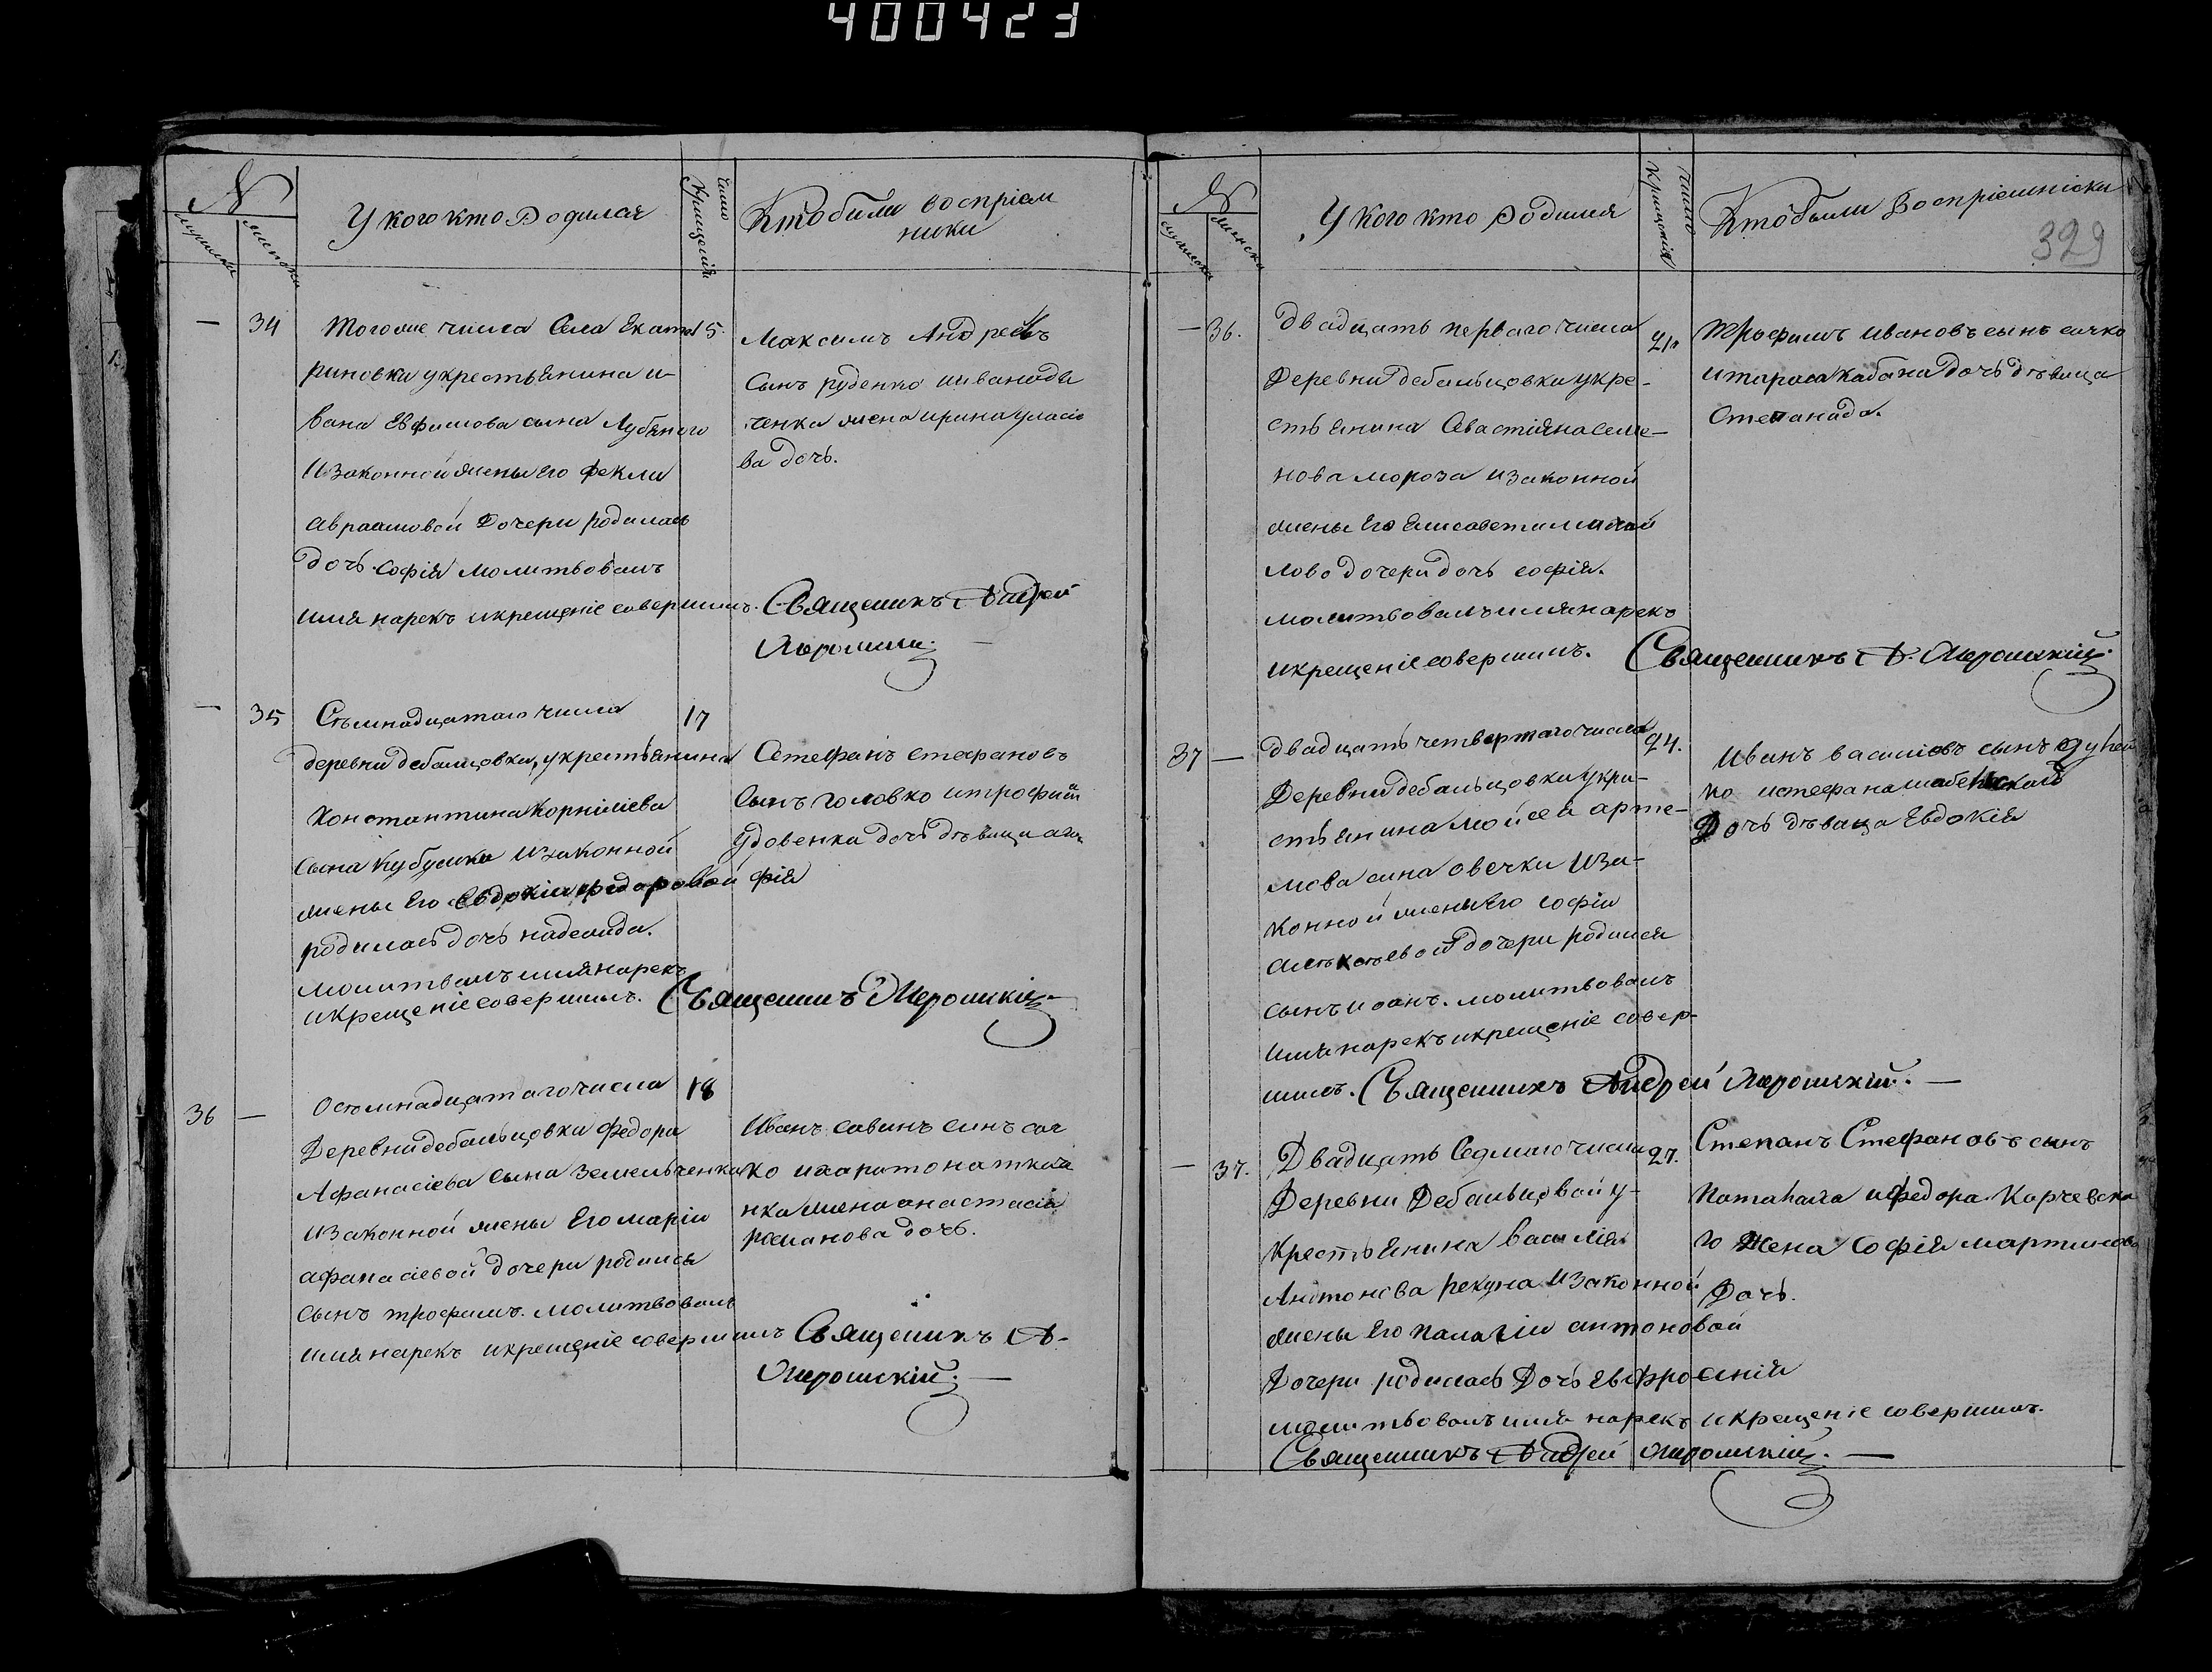 400423
№
мужеска
женска
У кого кто Родился
Число
Крещенія
Кто били воспріем
ники
— 34 Тогоже числа Села Екате 15.
риновки укрестьянина и-
вана Евфимова сына Лубяного
Изаконной жены Его Феклы
авраамовой Дочери родилась
дочь Софія Молитвовалъ
имя нарекъ икрещеніе совершилъ.
Максимъ Андреевъ
Сынъ руденко
ченка жена ирина уласіе
ва дочь.
Священикъ Андрей
— 35 Семнадцатаго числа 17
деревни дебальцовки, укрестьянина
Константина Корниліева
Сына Кубушка Изаконной
жены Его Евдокіи федоровой
родилась дочь надежда.
молитвалъ имя нарекъ
икрещеніе совершилъ.
Стефанъ стефановъ
Сынъ головко итрофима
удовенка дочь дѣвица ага
фія
Священикъ
36 — Осемнадцатаго числа 18
Деревни дебальцовки Федора
Афанасіева Сына Земельченка
Изаконной жены Его маріи
афанасіевой дочери родился
Сынъ трофимъ. Молитвовалъ
имя нарекъ икрещеніе совершилъ
Иванъ савинъ синъ сач
ко ихаритона ткаче
нка жена анастасія
романова дочь.
Священикъ А.
№
мужеска
женска
У кого кто Родился
Число
Крещенія
Кто были Воспріемніски
329
— 36. Двадцать перваго числа 21.
Деревни дебальцовки укре-
стьянина Савастіяна Семе-
нова мороза изаконной
жены Его Елисаветы михай
лово дочери дочь софія.
молитвовалъ имя нарекъ
икрещеніе совершилъ.
Трофимъ ивановъ сынъ сачко
итараса кабана дочь дѣвица
Степанида.
Священикъ А.
37 — двадцать четвертаго числа 24.
Деревни дебальцовки укри-
стьянина Мойсея арте-
мова сина овечки Иза-
конной жены Его софіи
алексѣевой дочери родился
сынъ иоанъ. молитвовалъ
имя нарекъ икрещеніе совер-
шилъ. Священикъ Андрей
Иванъ василіевъ сынъ
ко истефана
Дочь дѣвица Евдокія
— 37. Двадцать Седмаго числа 27.
Деревни Дебальцовой у-
крестьянина Василія
Антонова рекуна Изаконной
жены Его палагіи антоновой
Дочери родилась Дочь Евфросинія
молитвовалъ имя нарекъ икрещеніе совершилъ.
Священикъ Андрей
Степанъ Стефановъ сынъ
Потапала иФедора Корчевска
го Жена Софія мартинова
Дочь.